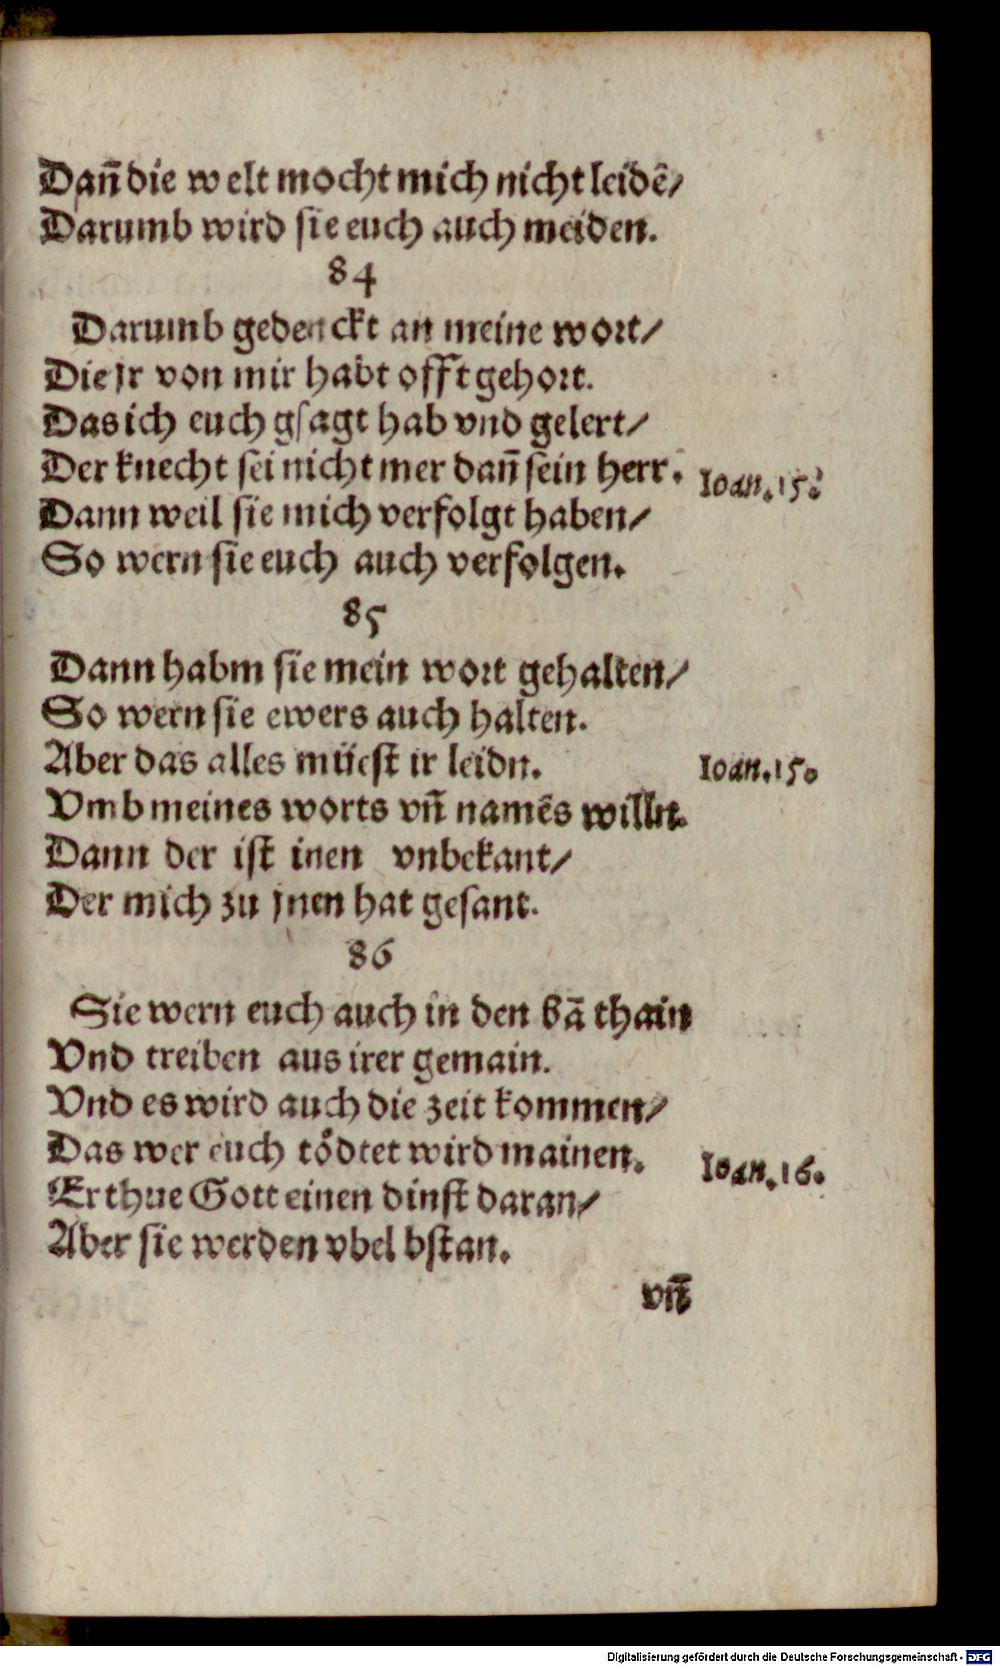 Dañ die welt mocht mich nicht leidē/
Darumb wird sie euch auch meiden.
84
Darumb gedenckt an meine wort/
Die jr von mir habt offt gehort.
Das ich euch gsagt hab vnd gelert/
Der knecht sei nicht mer dañ sein herr.
Ioan.15.
Dann weil sie mich verfolgt haben/
So wern sie euch auch verfolgen.
85
Dann habm sie mein wort gehalten/
So wern sie ewers auch halten.
Aber das alles müest ir leidn.
Ioan.15.
Vmb meines worts vñ namēs willn.
Dann der ist inen vnbekant/
Der mich zu jnen hat gesant.
86
Sie wern euch auch in den bā thain
Vnd treiben aus irer gemain.
Vnd es wird auch die zeit kommen/
Das wer euch tödtet wird mainen.
Ioan.16.
Er thue Gott einen dinst daran/
Aber sie werden vbel bstan.
vñ
Digitalisierung gefördert durch die Deutsche Forschungsgemeinschaft - DFG